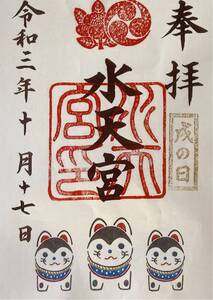 奉拝
戌の日
水天宮
令和三年十月十七日